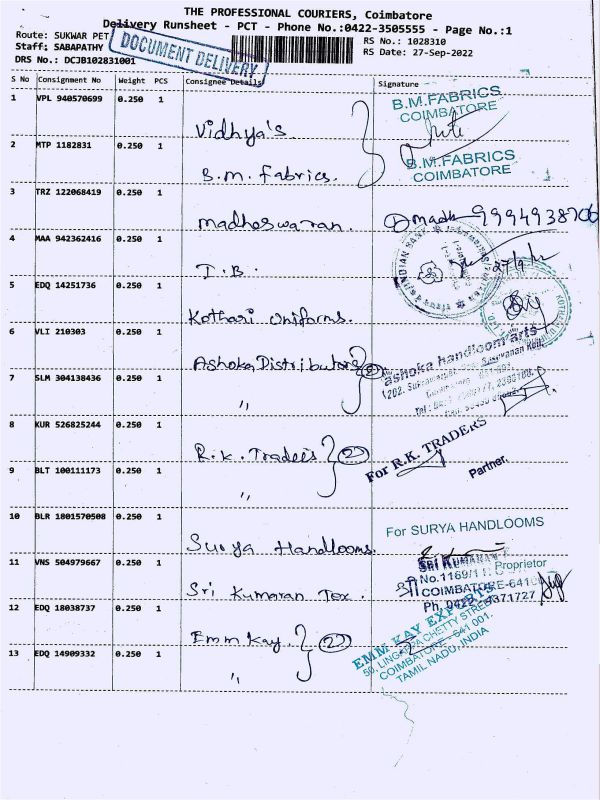 THE PROFESSIONAL COURIERS, Coimbatore
Delivery Runsheet - PCT - Phone No.:0422-3505555 - Page No.:1
Route: SUKWAR PET
Staff: SABAPATHY
DRS No.: DCJB102831001
DOCUMENT DELIVERY
RS No.: 1028310
RS Date: 27-Sep-2022
S No Consignment No Weight PCS Consignee Details Signature
1 VPL 940570699 0.250 1 Vidhya's B.M.FABRICS
COIMBATORE
2 MTP 1182831 0.250 1 B.M. Fabrics. B.M.FABRICS
COIMBATORE
3 TRZ 122068419 0.250 1 Madheswaran. Madh 9994938706
4 MAA 942362416 0.250 1 I.B. INDIAN BANK 27/9/22
5 EDQ 14251736 0.250 1 Kothari Uniforms.
6 VLI 210303 0.250 1 Ashoka Distributors ashoka handloom arts
7 SLM 304138436 0.250 1 "
8 KUR 526825244 0.250 1 R.K. Traders (2) For R.K. TRADERS
Partner.
9 BLT 100111173 0.250 1 "
10 BLR 1801570508 0.250 1 Surya Handlooms. For SURYA HANDLOOMS
Proprietor
11 VNS 504979667 0.250 1 Sri Kumaran Tex. SRI KUMARAN
No.1169/1
COIMBATORE-641
Ph. 0422 4371727
12 EDQ 18038737 0.250 1 Emm Kay. (2) EMM KAY EXPORTS
50, LINGAPPA CHETTY STREET
COIMBATORE - 641 001.
TAMIL NADU, INDIA
13 EDQ 14909332 0.250 1 "